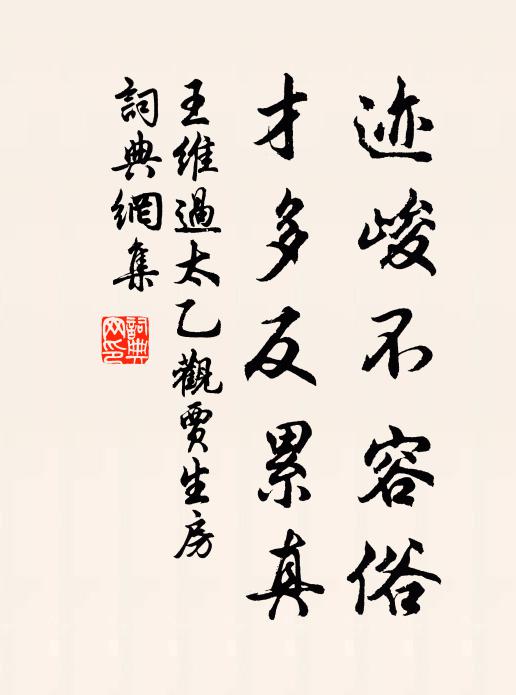 迹峻不容俗
才多反累真
王維過太乙觀賈生房
詞典網集
詞典網印